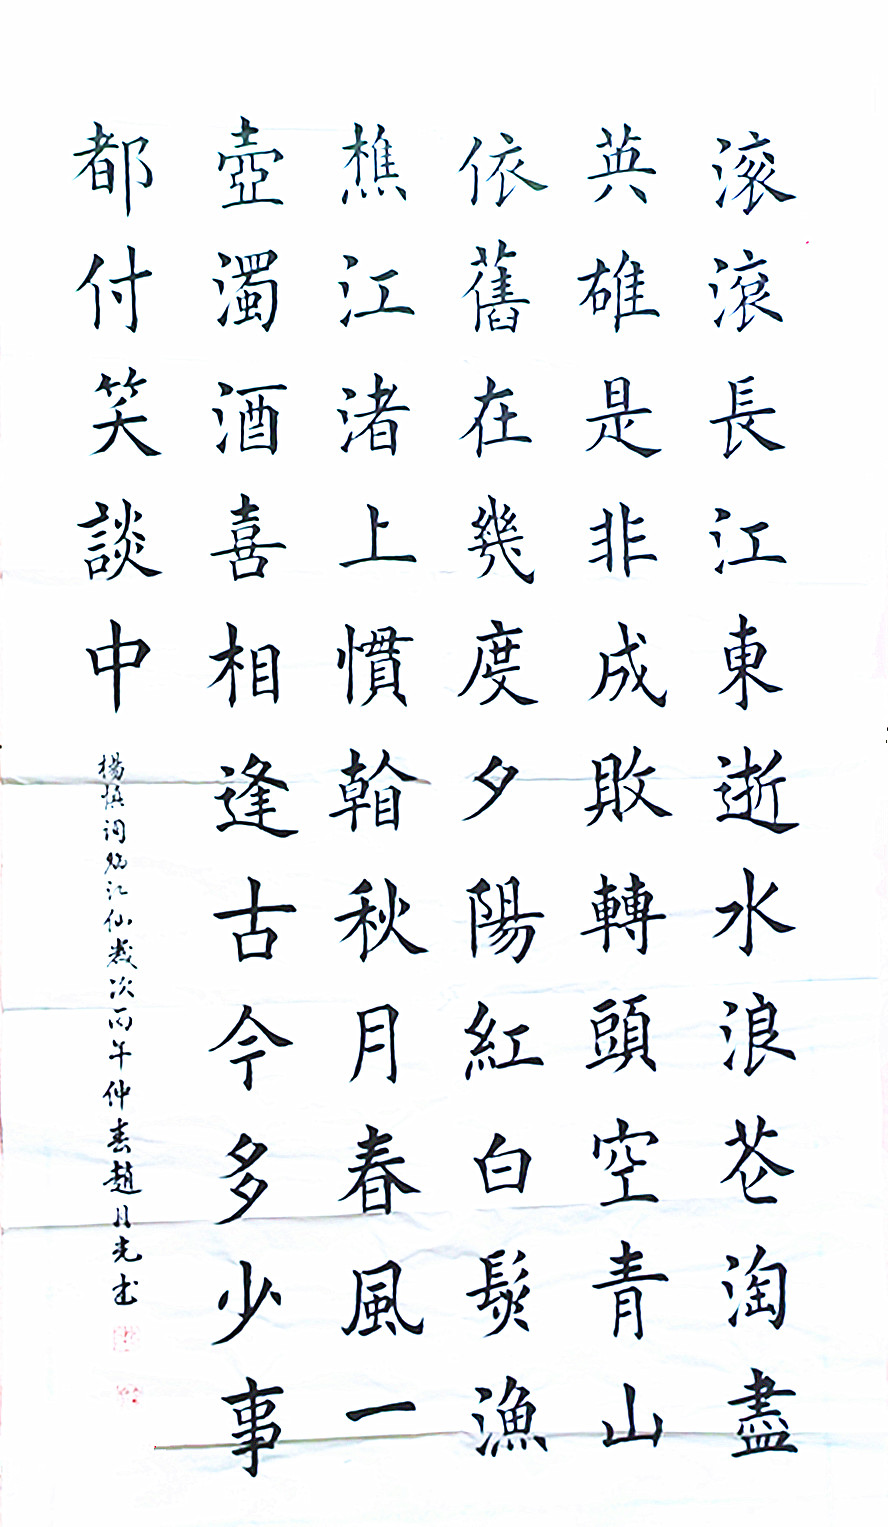 滚滾長江東逝水浪苍淘盡
英雄是非成敗轉頭空青山
依舊在幾度夕陽紅白髮漁
樵江渚上慣看秋月春風一
壺濁酒喜相逢古今多少事
都付笑談中
楊慎词临江仙歲次丙午仲春趙月光书